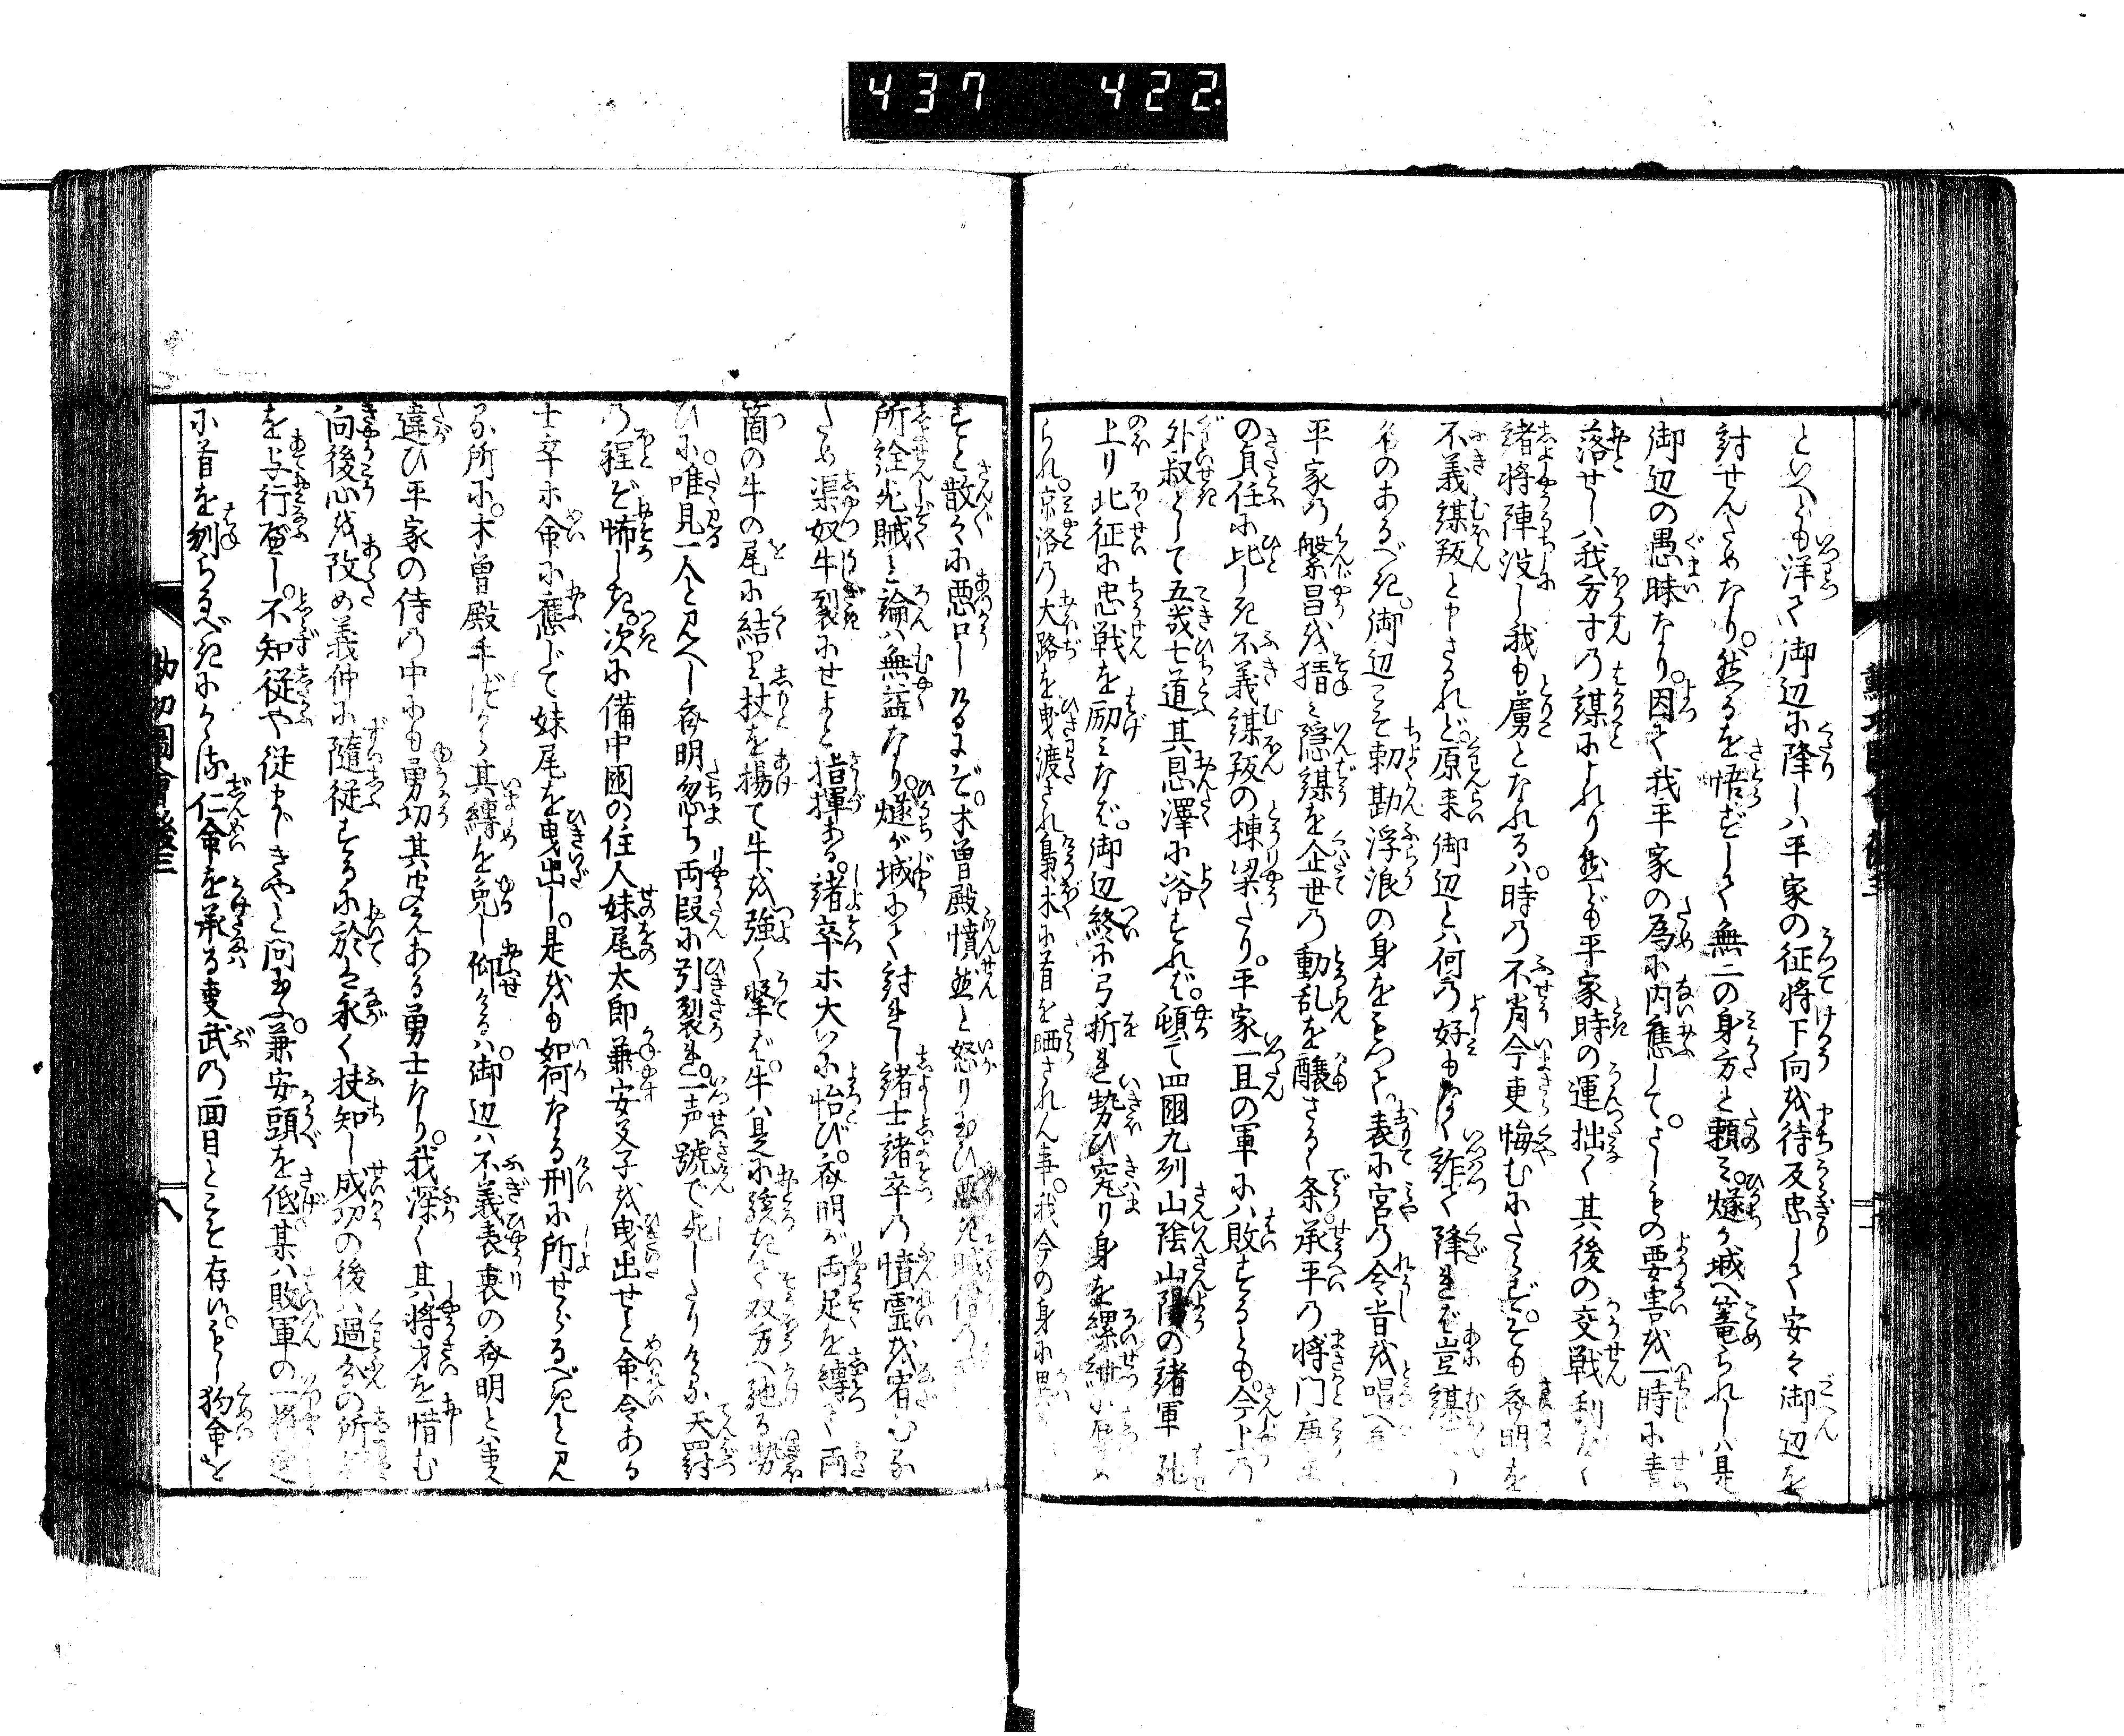 437 422
といへども洋て御辺に降しハ平家の征将下向を待反忠して安々御辺を
討せんためなり。然るを悟ずして無二の身方と頼ミ。燧が城へ篭られしハ是
御辺の愚昧なり。因て我平家の為に内應して。よしもの要害を一時に責
落せしハ我方寸の謀によれり然ども平家時の運拙く其後の交戦利なく
諸将陣没し我も虜となれるハ。時の不肖今更悔むにたらず。そも斉明を
不義謀叛と申さるれど。原来御辺とハ何の好もなく詐て降れば豈謀
名のあるべき。御辺こそ勅勘浮浪の身をもつて。表に宮の令旨を唱へ
平家の繁昌を猜ミ隠謀を企世の動乱を醸さるゝ条。承平の将門
の負任に比しき不義謀叛の棟梁たり。平家一旦の軍にハ敗するとも。今上の
外叔として五畿七道其恩澤に浴すれば。頓て四國九列山陰山陽の諸軍
上り北征に忠戦を励ミなば。御辺終に弓折れ勢ひ究り身を縲紲に
られ。京洛の大路を曳渡され梟木に首を晒されん事。我今の身に異
勲功圖會後三
八
ミと散々に悪口しけるにぞ。木曽殿憤然と怒り玉ひ
所詮死賊と論ハ無益なり。燧が城にて討れし諸士諸卒の憤霊を宥むる
ため渠奴牛裂にせよと指揮ある。諸卒ホ大いに怡び。斉明が両足を縛て両
箇の牛の尾に結て杖を揚て牛を強く撃ば。牛ハ是に駭きて双方へ馳る勢
ひに。唯見一人と見へし斉明忽ち両段に引裂れ。一声號で死したりけるハ天罸
の程ぞ怖しき。次に備中國の住人妹尾太郎兼安父子を曳出せと命令ある
士卒ホ命に應じて妹尾を曳出し。是をも如何なる刑に所せらるべきと見
る所に。木曽殿手づから其縛を免し仰けるハ。御辺ハ不義表裏の斉明とハ事
違ひ平家の侍の中にも勇功其聞えある勇士なり。我深く其将才を惜む
向後心を改め義仲に隨従するに於てハ永く扶知し成功の後ハ過分の所
を与行べし。不知従や従まじきやと問玉ふ。兼安頭を低某ハ敗軍の一
に首を刎らるべきにかゝる仁命を承る事武の面目とこそ存い